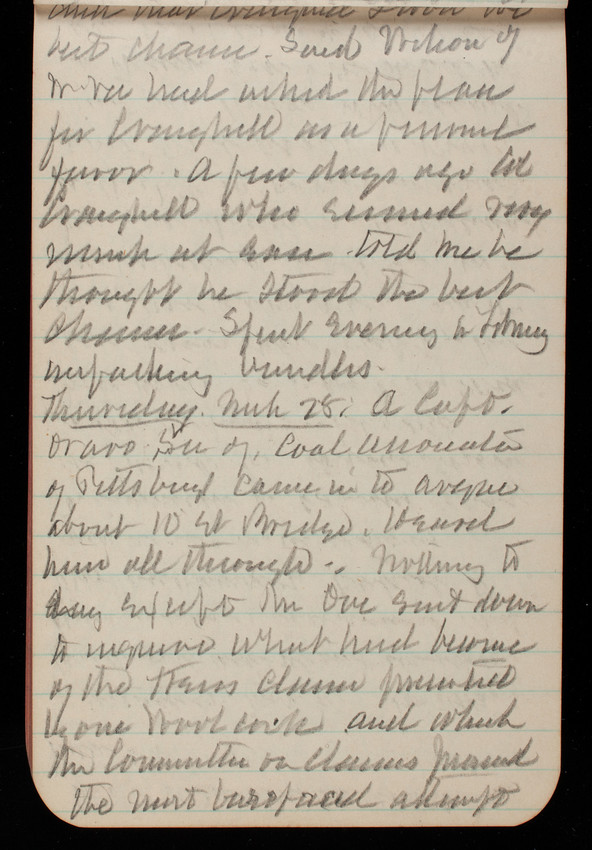 best chance. Said Wilson of
had asked the place
for Craighill as a personal
favor. A few days ago Col
Craighill who seemed very
much at sea told me he
thought he stood the best
chance. Spent evening in Library
unpacking bundles.
Thursday. Mch 28. A Capt.
Dravo Sec of, Coal Association
of Pittsburg came in to argue
about 10 St Bridge. Heard
him all through. Nothing to
say except the Sec sent down
to inquire what had become
of the claim presented
by one and which
the Committee on Claims
the most barefaced attempt